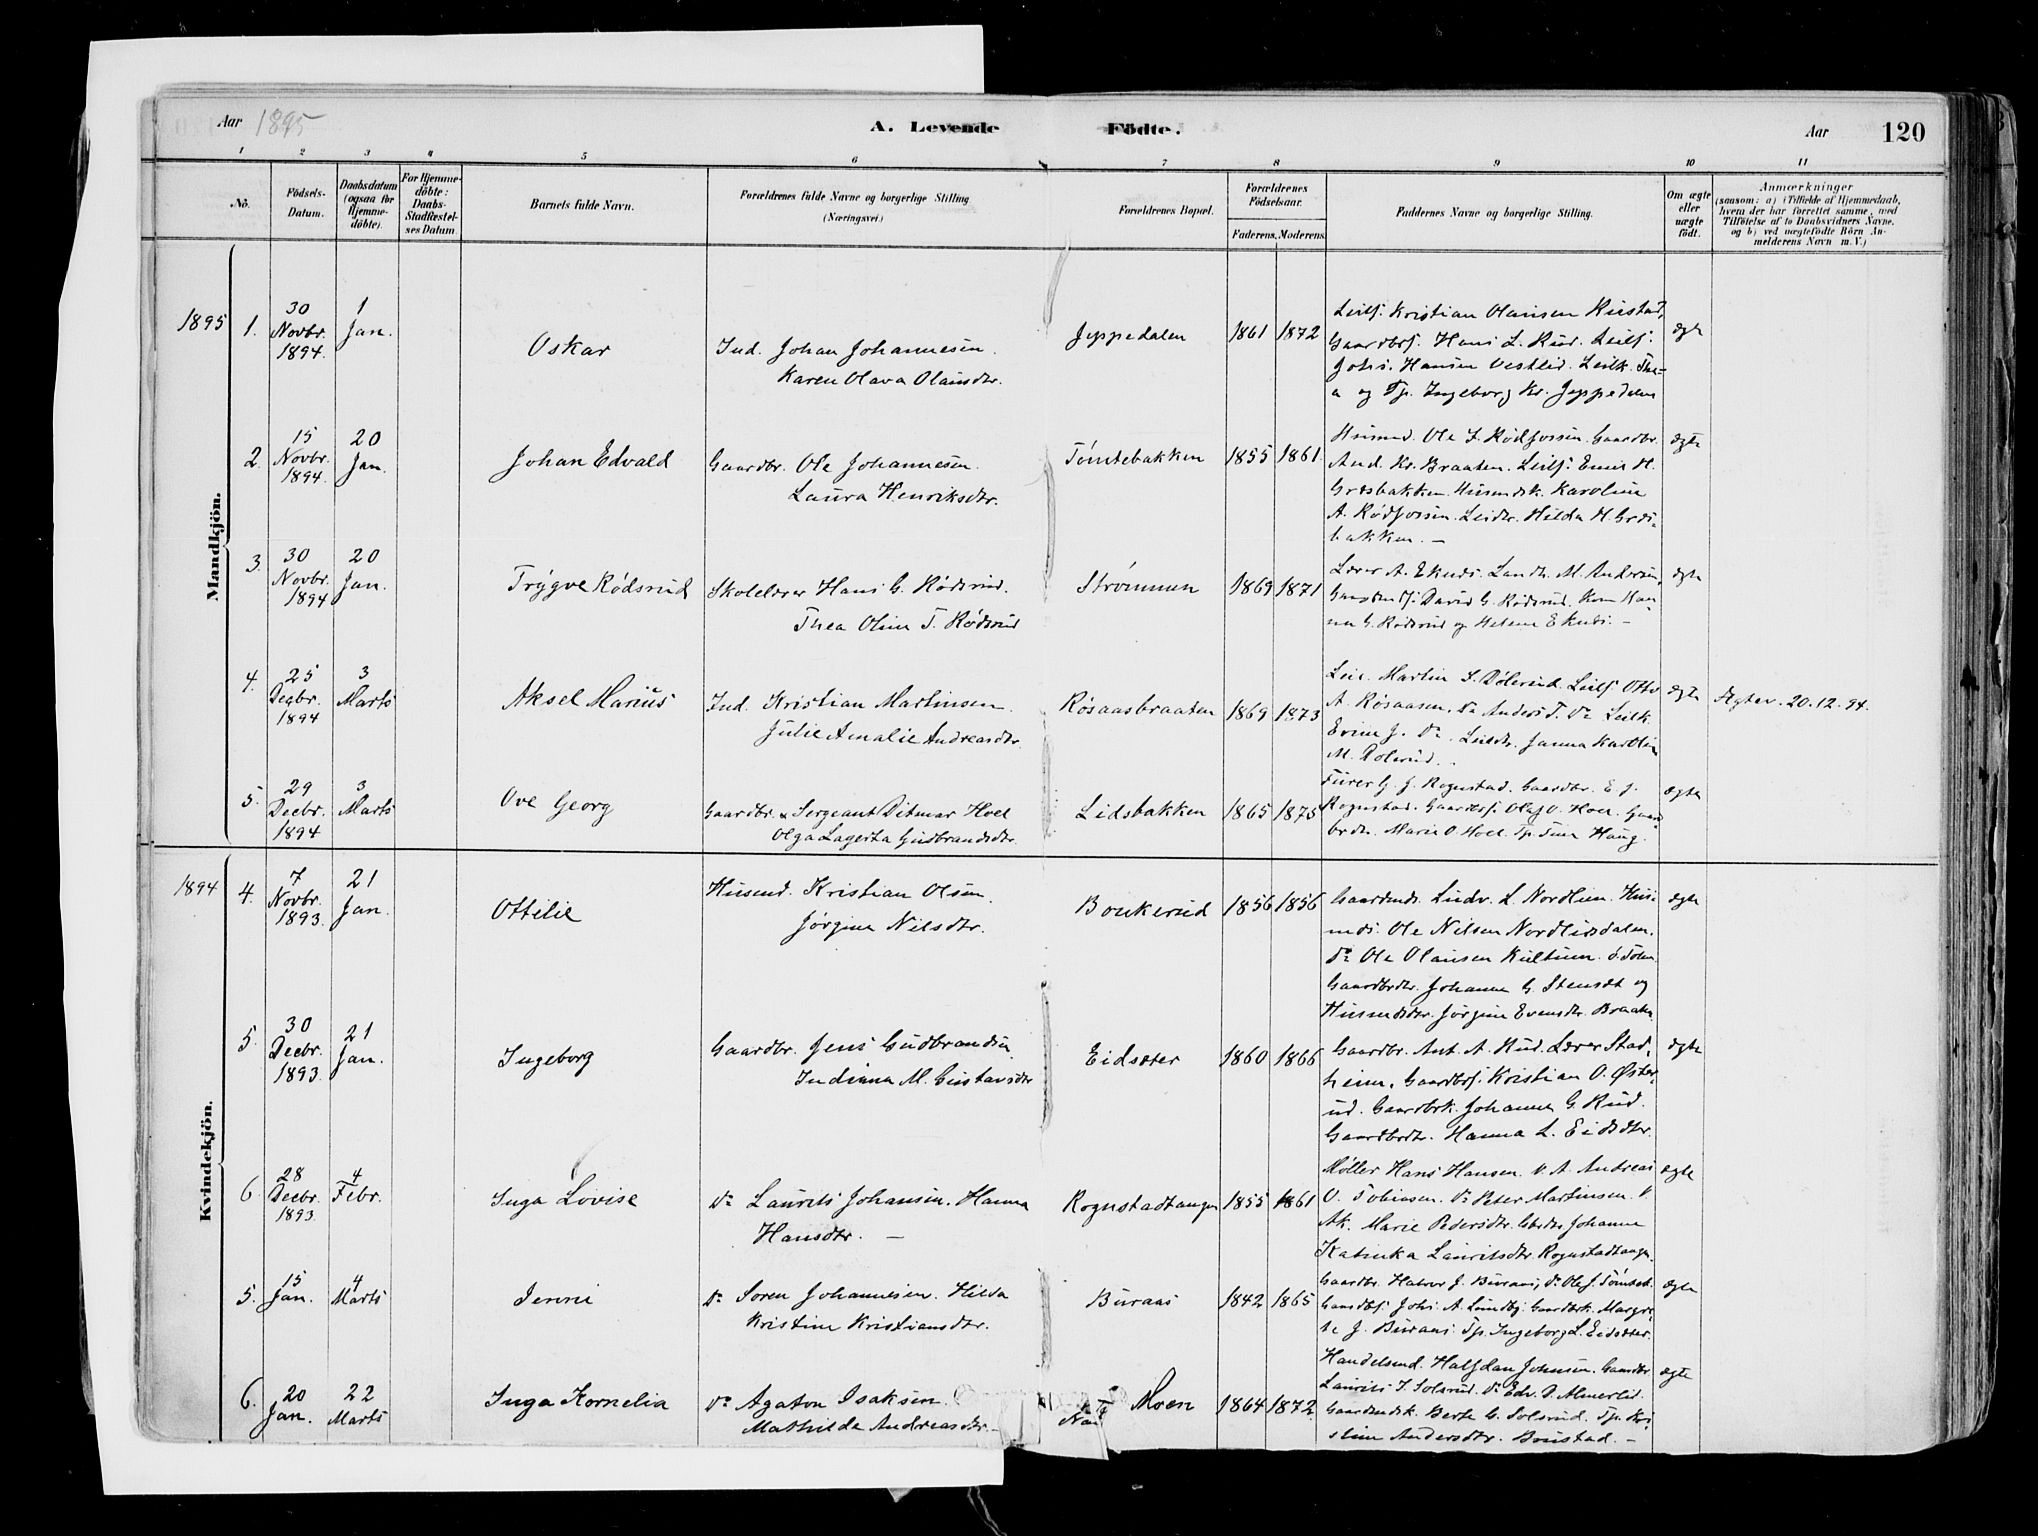 Aar 1895
A. Levende Födte.
Aar 120
1 2 3 4 5 6 7 8 9 10 11
No.
Födsels-
Datum.
Daabsdatum
(ogsaa for
Hjemme-
döbte).
For Hjemme-
döbte:
Daabs-
Stadfæstel-
ses Datum.
Barnets fulde Navn.
Forældrenes fulde Navne og borgerlige Stilling
(Næringsvei)
Forældrenes Bopæl.
Forældrenes
Födselsaar.
Faderens. Moderens.
Faddernes Navne og borgerlige Stilling.
Om ægte
eller
uægte
födt.
Anmærkninger
(saasom: a) i Tilfælde af Hjemmedaab,
hvem der har forrettet samme, med
Tilföielse af to Daabsvidners Navne.
og b) ved uægtefödte Börn An-
melderens Navn m. V.)
Mandkjön.
1895 1. 30 Novbr. 1894. 1 Jan. Oskar
Ind. Johan Johannesen.
Karen Olava Olausdtr.
Jeppedalen 1861 1872
Leilf. Kristian Olausen Rustad,
Gaardbrf. Hans L. Rud. Leilf.
Johs. Hansen Vestlid. Leilk. The-
a og Tp. Ingeborg Kr. Jeppedalen
ægte
2. 15 Novbr. 1894. 20 Jan. Johan Edvald
Gaardbr. Ole Johannesen.
Laura Henriksdtr.
Tømtebakken 1855 1861.
Husmd. Ole J. Rødfossen. Gaardbr.
And. Kr. Braaten. Leilf. Emil H.
Græsbakken. Husmdsk. Karoline
A. Rødfossen. Leidtr. Hilda H. Græs-
bakken. —
ægte
3. 30 Novbr. 1894 20 Jan. Trygve Rødsrud
Skolelærer Hans G. Rødsrud.
Thea Oline T. Rødsrud
Strømmen 1869 1871
Lærer A. Eknes. Landh. M. Andersen,
Gaardbrsf. David G. Rødsrud. Kone Han-
na G. Rødsrud og Helene Eknes. —
ægte
4. 25 Decbr. 1894 3 Marts Aksel Marius
Ind. Kristian Martinsen.
Julie Amalie Andreasdtr.
Røsaasbraaten 1869 1873
Leil. Martin S. Dølerud. Leilf. Otto
A. Røsaasen. Do Anders T. Do Leilk.
Evine J. Do. Leildtr. Janna Karoline
M. Dølerud.
ægte Ægtev. 20.12.94.
5. 29 Decbr. 1894 3 Marts Ove Georg
Gaardbr. & Sergeant Ditmar Hoel
Olga Lagerta Gudbrandsdtr.
Lidsbakken 1865 1875
Furer G. J. Rognstad. Gaardbr. E. J.
Rognstad. Gaardbsf. Olaf O. Hoel. Gaard-
brdtr. Marie O. Hoel. Tp. Tine Haug.
ægte
Kvindekjön.
1894 4. 7 Novbr. 1893. 21 Jan. Ottilie
Husmd. Kristian Olsen.
Jørgine Nilsdtr.
Boukerud 1856 1856
Gaardmds. Ludv. L. Nordlien. Hus-
mds. Ole Nilsen Nordliesdalen.
Do Ole Olausen Kultum. ø. Toten
Gaardbrdtr. Johanne G. Stensæt og
Husmdsdtr. Jørgine Evensdtr. Braaten
ægte
5. 30 Decbr. 1893. 21 Jan. Ingeborg
Gaardbr. Jens Gudbrandsen.
Indiana M. Gustavsdtr
Eidsæter 1860 1866
Gaardbr. Ant. A. Hud. Lærer Stad-
heim. Gaardbsf. Kristian O. Øster-
ud. Gaardbrk. Johanne G. Rud.
Gaardbrdtr. Hanna L. Eidsæter.
ægte
6. 28 Decbr. 1893. 4 Febr. Inga Lovise
Do Laurits Johansen. Hanna
Hansdtr. —
Rognstadtangen 1855 1861
Møller Hans Hansen V. A. Andreas
O. Tobiasen. Do Peter Martinsen V
Ak. Marie Pedersdtr. Gbrdtr. Johanne
Katinka Lauritsdtr. Rognstadtangen.
ægte
5. 15 Jan. 4 Marts Jenni
Do Søren Johannesen. Hilda
Kristine Kristiansdtr.
Buraas 1842 1865
Gaardbr. Halvor J. Buraas, Do Ole J. Tømtebk.
Gaardbsf. Johs. A. Lundby. Gaardbrk. Margre-
te J. Buraas. Tp. Ingeborg L. Eidsæter.
ægte
6. 20 Jan. 22 Marts Inga Kornelia
Do Agaton Isaksen.
Mathilde Andreasdtr. —
Moen 1864 1872
Handelsmd. Halfdan Johnsen. Gaardbr.
Laurits J. Solsrud. Do Edv. P. Almerlid.
Gaardmdsk. Berte G. Solsrud. Tp. Kri-
stine Andersdtr. Boustad. —
ægte